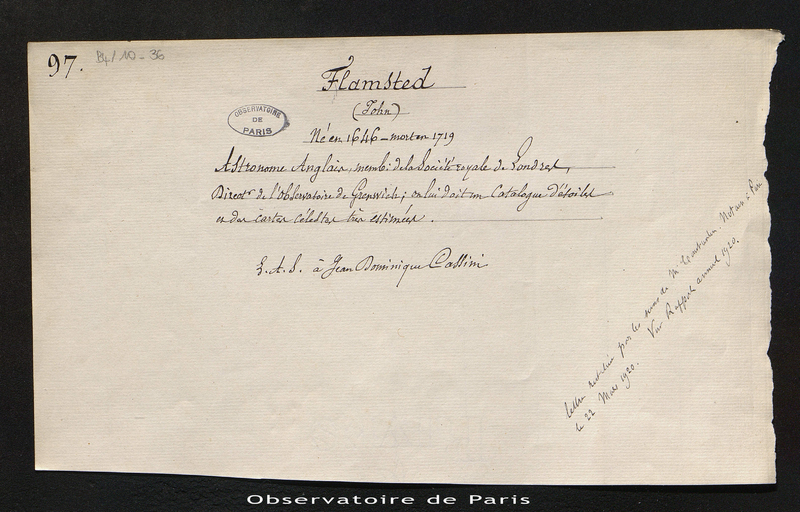 97. B4/10-36
Flamsted
(John)
OBSERVATOIRE
DE
PARIS
Né en 1646 – mort en 1719
Astronome Anglais, memb: de la Société royale de Londres,
Directr de l'Observatoire de Grenwich; on lui doit un Catalogue d'étoiles
et des cartes célestes très estimées.
L. A. S. à Jean Dominique Cassini
Lettre restituée par les soins de Mr Notaire à
le 22 Mars 1920. Voir Rapport annuel 1920.
Observatoire de Paris